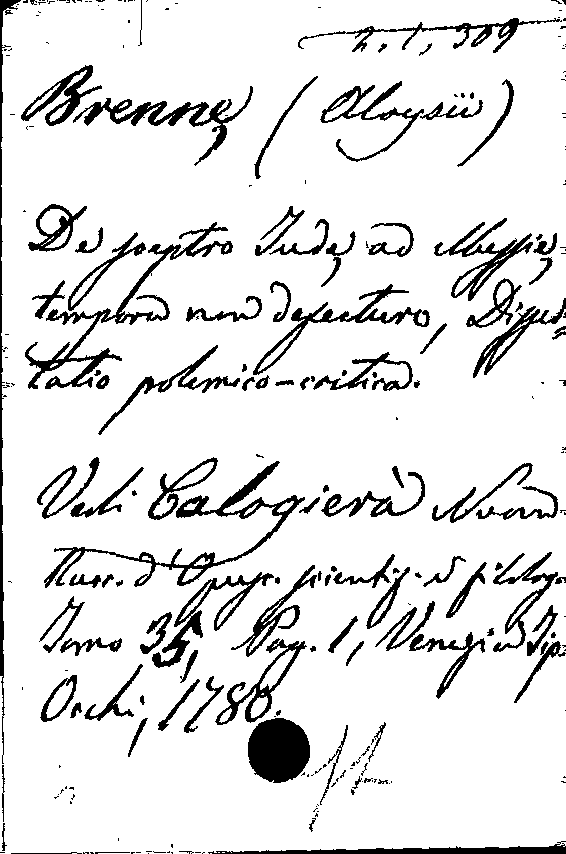 2. 1, 309
Brennę (Aloysii)
De sceptro Judę ad Messię
tempora non defecturo, Disser-
tatio polemico-critica.
Vedi Calogierà Nuova
Racc. d'Opusc. scientif. e filolog.
Tomo 35, Pag. 1, Venezia Tip.
Occhi, 1780.